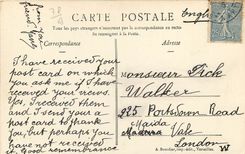 from your
friend
CARTE POSTALE
Tous les pays étrangers n'acceptent pas la correspondance au recto
Se renseigner à la Poste
Correspondance
Adresse
I have received your
post card on which
you ask me if I have
received your views.
Yes, I received them
and I send you a
post card to thank
you, but perhaps
you have not received
it. Good remembrance
Monsieur Dick
Walker
225 Portsdown Road
Maida Vale
London
W